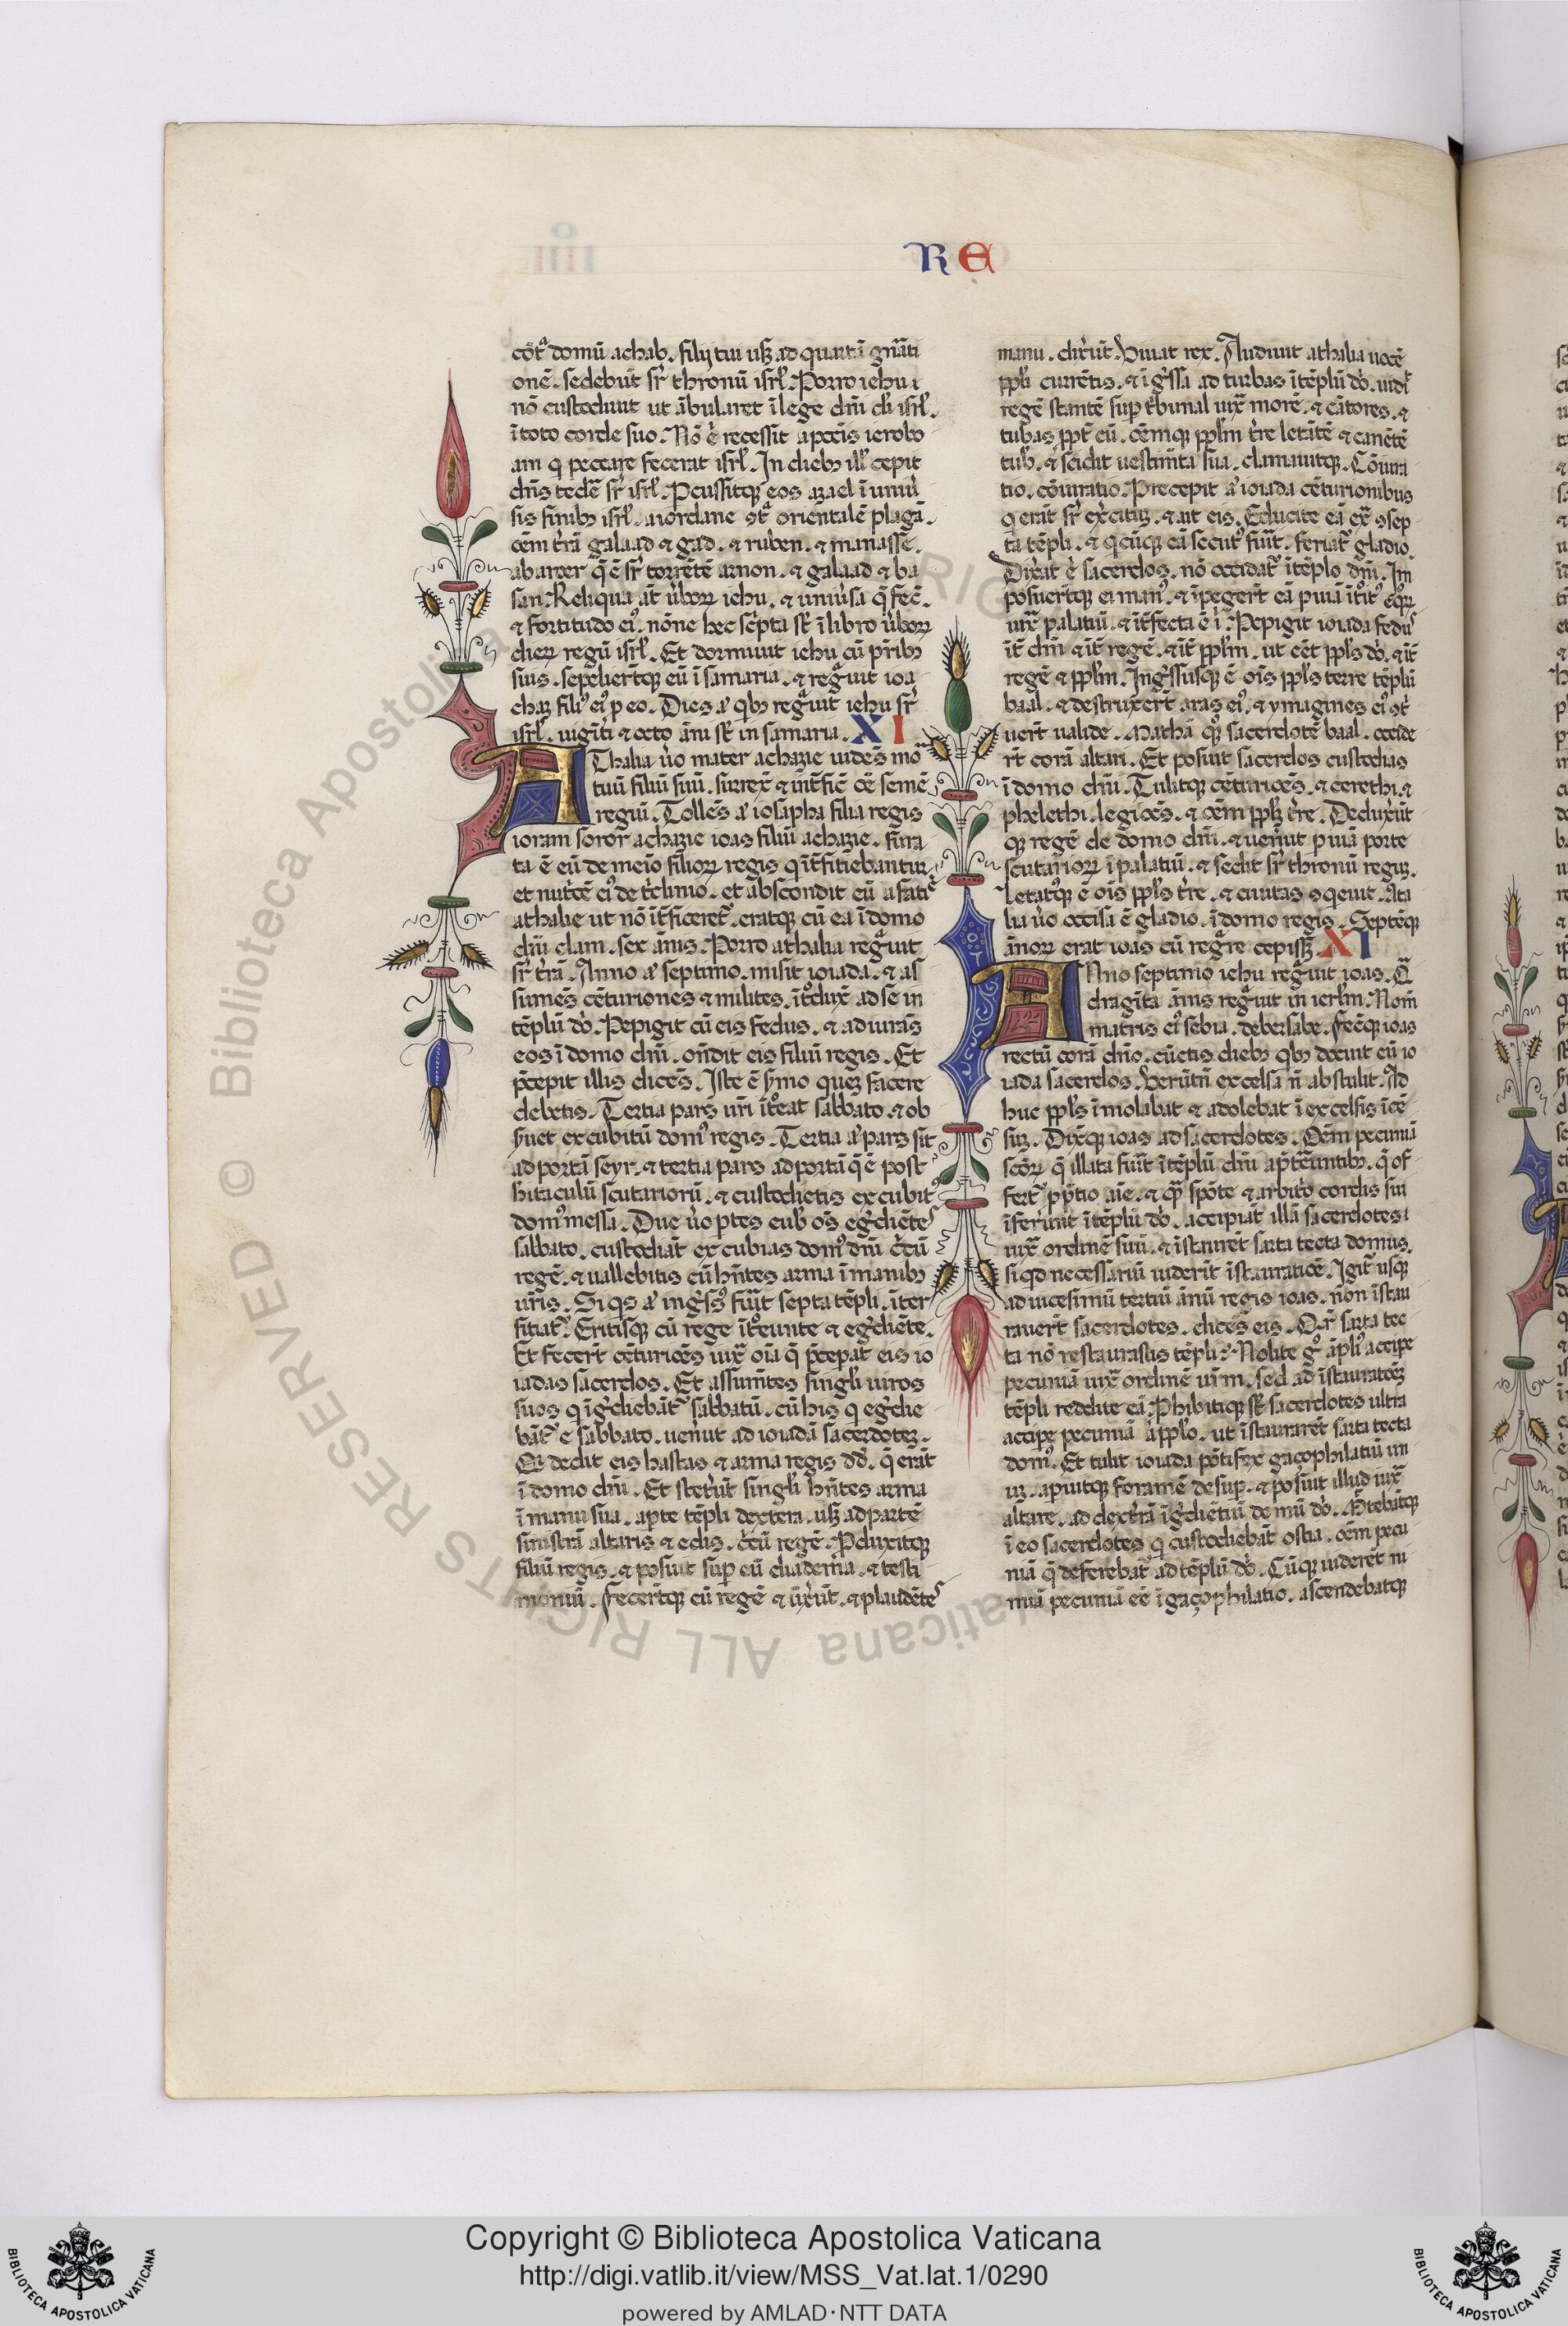 RE
cōt᷑ domū achab. filij tui usꝫ ad quartā gn̄ati
onē. sedebūt sr̄ thronū isrl̄. Porro iehu
nō custodiuit ut ābularet ī lege dn̄i dī isrl̄.
ī toto corde suo. Nō .n̄. recessit a pcc̄is ierobo
am q̄ peccare fecerat isrl̄. In diebꝫ ill̄ cepit
dn̄s tedē sr̄ isrl̄. Pcussitqꝫ eos azael ī uniū
sis finibꝫ isrl̄. a iordane ꝯt᷑ orientalē plagā.
oēm t̄rā galaad & gad. & ruben. & manasse.
ab aroer q̄ ē sr̄ torrētē arnon. & galaad & ba
san. Reliqua āt ūboꝝ iehu. & uniūsa q̄ fec̄.
& fortitudo eiꝰ. nōne hec sc̄ipta st̄ ī libro ūboꝝ
dieꝝ regū isrl̄. Et dormiuit iehu cū pr̄ibꝫ
suis. sepelier̄tqꝫ eū ī samaria. & regᷓuit ioa
chaz filiꝰ eiꝰ p eo. Dies a᷑ qbꝫ regᷓuit iehu sr̄
isrl̄. uigīti & octo āni st̄ in samaria. XI
AThalia ūo mater achazie uidēs mo
tuū filiū suū. surrex̄ & int̄fic̄ oē semē
regiū. Tollēs a᷑ iosapha filia regis
ioram soror achazie ioas filiū achazie. fura
ta ē eū de meīo filioꝝ regis q īt̄fitiebantur.
et nutc̄ē eiꝰ de tc̄linio. et abscondit eū a fatīe
athalie ut nō īt̄ficeret᷑. eratqꝫ cū ea ī domo
dn̄i clam. sex ānis. Porro athalia regᷓuit
sr̄ t̄rā. Anno a᷑ septimo. misit ioiada. & as
sumēs cēturiones & milites. īt̊dux̄ ad se in
tēplū dn̄. Pepigit cū eis fedus. & adiurās
eos ī domo dn̄i. on̄dit eis filiū regis. Et
p̄cepit illis dicēs. Iste ē ẜmo quez facere
debetis. Tertia pars ur̄i īt̊eat sabbato. & ob
ẜuet excubitū domꝰ regis. Tertia a᷑ pars sit
ad portā seyr. & tertia pars ad portā q̄ ē post
hitaculū scutariorū. & custodietis excubit̊
domꝰ messa. Due ūo ptes eub̄ oēs egᷓdiētes
sabbato. custodiāt excubias domꝰ dn̄i cc̄ū
regē. & uallebitis eū hn̄tes arma ī manibꝫ
ur̄is. Si qs a᷑ ingᷓsꝰ fuīt septa tēpli. īter
fitiat᷑. Eritisqꝫ cū rege īt̊eunte & egᷓdiēte.
Et fecer̄t cēturiōēs iux̄ oīa q̄ p̄cepat eis io
iadas sacerdos. Et assumētes singl̄i uiros
suos q īgᷓdiebāt᷑ sabbatū. cū his q egᷓdie
bāt᷑ e sabbato. uenīut ad ioiadā sacerdotez.
Qi dedit eis hastas & arma regis dd̄. q̄ erāt
ī domo dn̄i. Et stet̄ūt singl̄i hn̄tes arma
ī manu sua. a pte tēpli dextera. usꝫ ad partē
sinistrā altaris & edis. cc̄ū regē. Pduxitqꝫ
filiū regis. & posuit sup eū diadema. & testi
moniū. Fecer̄tqꝫ eū regē & ūx̄ūt. & plaudētes
manu. dix̄ūt. Viuat rex. Audiuit athalia uocē
ppl̄i currētis. & īgᷓssa ad turbas ī tēplū dn̄. uid̄
regē stantē sup t̄bunal iux̄ morē. & cātores. &
tubas ppt̄ eū. oēmqꝫ ppl̄m t̄re letātē & canētē
tub̄. & scidit uestimīta sua. clamauitqꝫ. Cōiura
tio. cōiuratio. Precepit a᷑ ioiada cēturionibus
q erāt sr̄ exc̄itū. & ait eis. Educite eā ex̄ ꝯsep
ta tēpli. & qcūqꝫ eā secutꝰ fuīt. feriat᷑ gladio.
Dixāt .n̄. sacerdos. nō occidat᷑ ī tēplo dn̄i. Im
posuer̄tqꝫ ei manꝰ. & īpeger̄t eā p uiā īt̊itꝰ eqꝝ
iux̄ palatiū. & īt̄fecta ē ī. Pepigit ioiada fedus
īt̄ dn̄i & īt̄ regē. & īt̄ ppl̄m. ut eēt ppl̄s dn̄. & īt̄
regē & ppl̄m. Ingᷓssusqꝫ ē oīs ppl̄s terre tēplū
baal. & destruxer̄t aras eiꝰ. & ymagines eiꝰ ꝯt̄
uer̄t ualide. Mathā qꝫ sacerdotē baal. occide
rt̄ corā altari. Et posuit sacerdos custodias
ī domo dn̄i. Tulitqꝫ cēturiōēs. & cerethi. &
phelethi. legiōēs. & oēm pplꝫ t̄re. Deduxūt
qꝫ regē de domo dn̄i. & uenīut p uiā porte
scutarioꝝ ī palatiū. & sedit sr̄ thronū reguꝫ.
Letatꝰqꝫ ē oīs ppl̄s t̄re. & ciuitas ꝯqeuit. Ata
lia ūo occisa ē gladio. ī domo regis. Septēqꝫ
ānoꝝ erat ioas cū regᷓre cepisꝫ. XI
ANno septimo iehu regᷓuit ioas. Qᷓ
dragīta ānis regᷓuit in ierl̄m. Nom̄
matris eiꝰ sebia. de bersabe. Fec̄qꝫ ioas
rectū corā dn̄o. cūctis diebꝫ qbꝫ docuit eū io
iada sacerdos. Verūtn̄ excelsa n̄ abstulit. Ad
huc ppl̄s īmolabat & adolebat ī excelsis īcē
suꝫ. Dix̄qꝫ ioas ad sacerdotes. Oēm pecuniā
scōꝝ q̄ illata fuīt ī tēplū dn̄i a pt̄ereuntibꝫ. q̄ of
fert᷑ p p̄tio aīe. & qᷓ spōte & arbit̊o cordis sui
īferunt ī tēplū dn̄. accipiāt illā sacerdotes
iux̄ ordinē suū. & īstaurēt sarta tecta domus.
si qd necessariū uiderīt īstauratiōē. Igit᷑ usqꝫ
ad uicesimū tertiū ānū regis ioas. non īstau
rauer̄t sacerdotes. dicēs eis. Qr̄ sarta tec
ta nō restaurastis tēpli? Nolite gͦ āpliꝰ accipe
pecuniā iux̄ ordinē ur̄m. sed ad īstauratōēꝫ
tēpli reddite eā. Phibitiqꝫ st̄ sacerdotes ultra
accipe pecuniā a ppl̄o. ut īstaurarēt sarta tecta
domꝰ. Et tulit ioiada pōtifex gaçophilatiū un
uꝫ. apuitqꝫ foramē desup. & posuit illud iux̄
altare. ad dext̄rā īgᷓdiētiū domū dn̄. Mt̄tebātqꝫ
ī eo sacerdotes q custodiebāt ostia. oēm pecu
niā q̄ deferebat᷑ ad tēplū dn̄. Cūqꝫ uiderēt ni
miā pecuniā eē ī gaçophilatio. ascendebatqꝫ
Copyright © Biblioteca Apostolica Vaticana
http://digi.vatlib.it/view/MSS_Vat.lat.1/0290
powered by AMLAD·NTT DATA